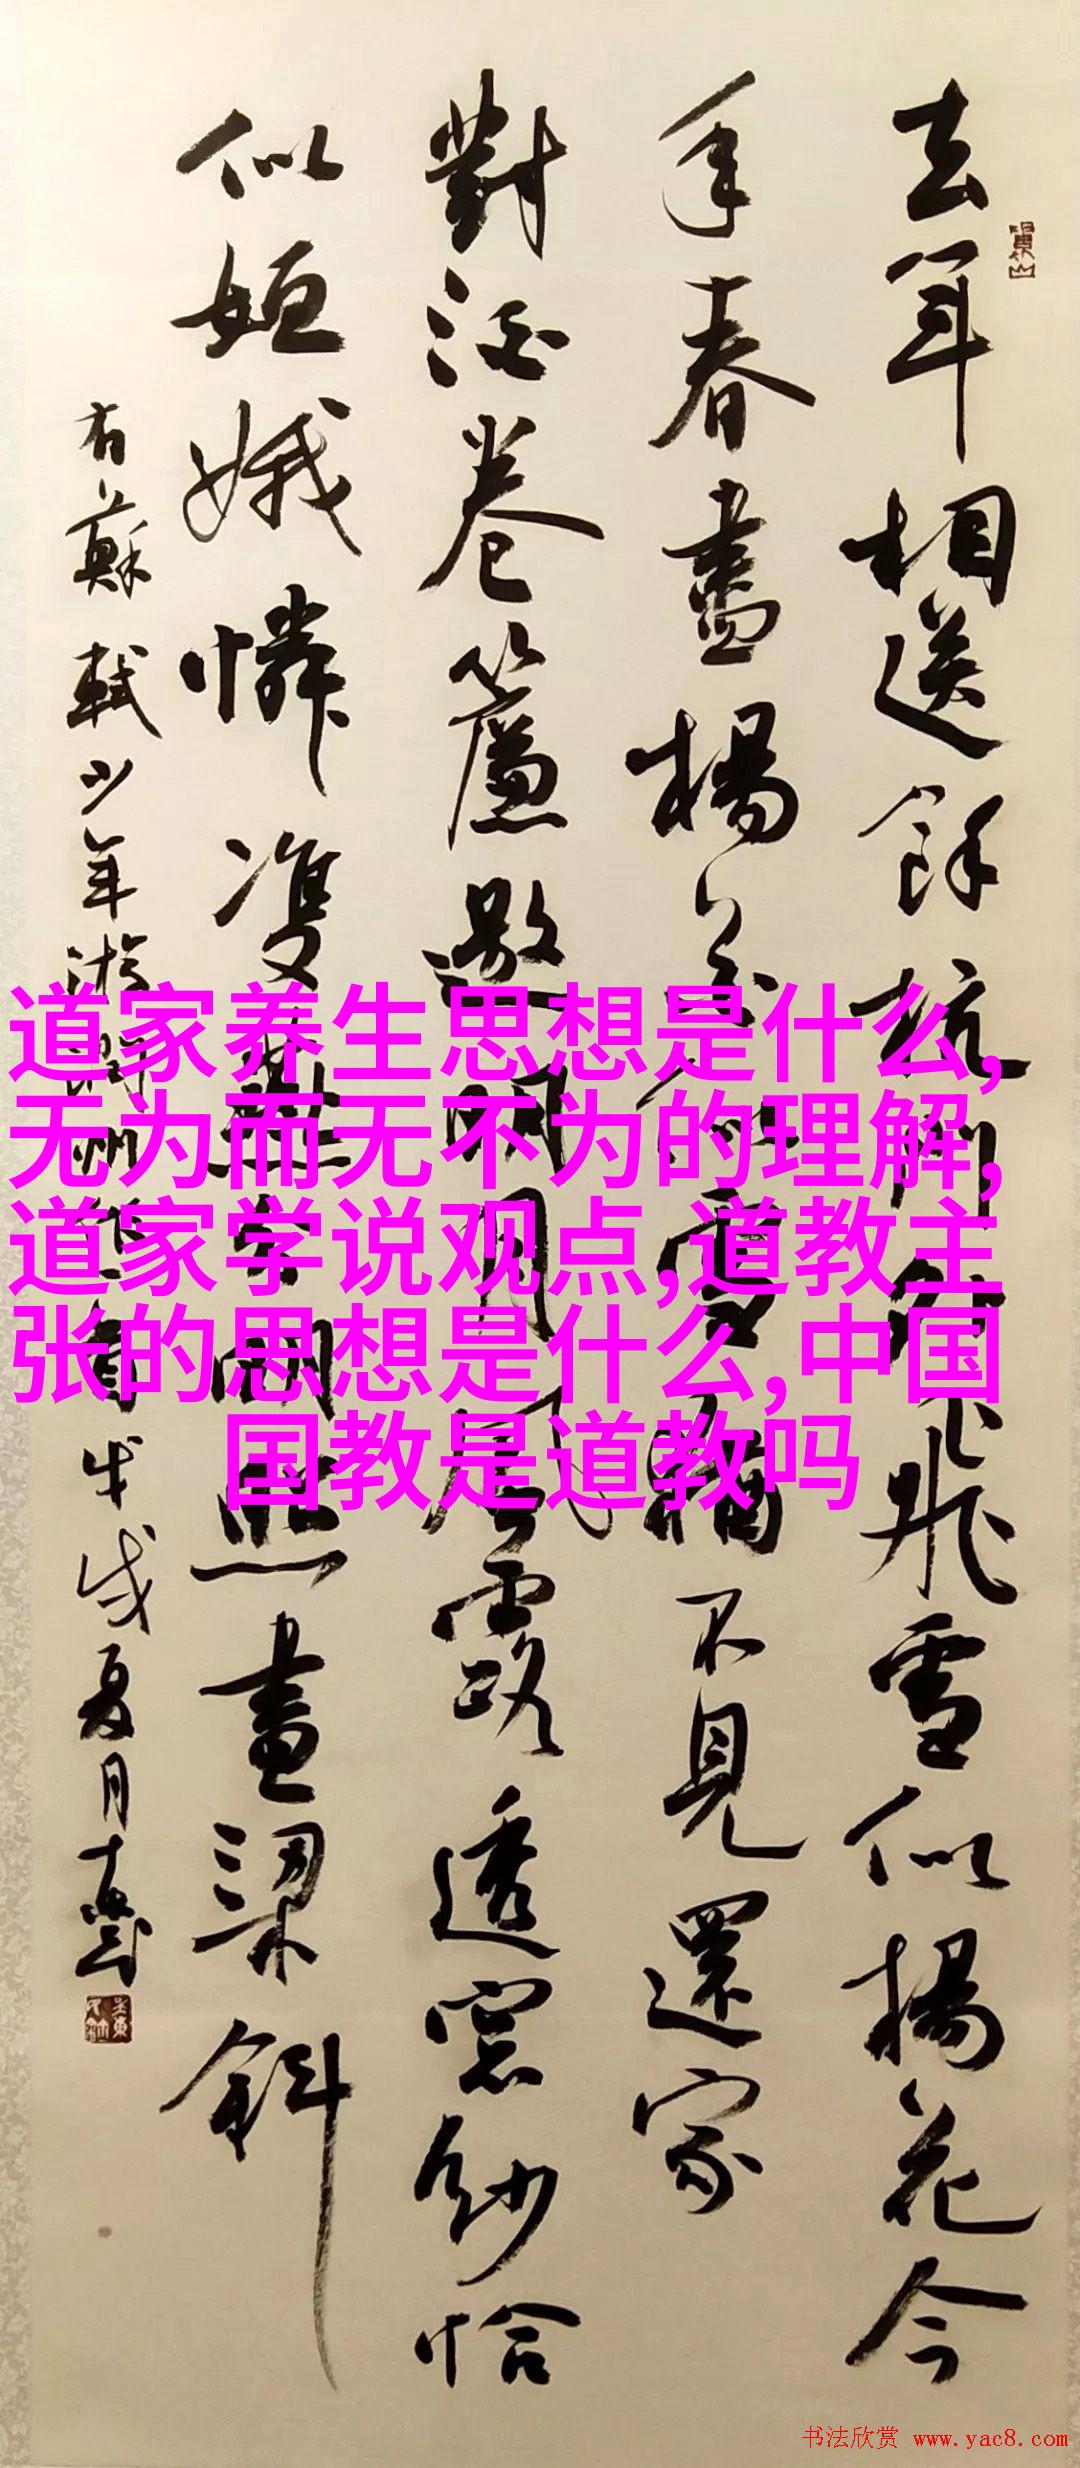 去年相送餘杭門外飛雪似楊花今
年春盡楊花似雪猶不見還家
對酒卷簾邀明月風露透窓紗恰
似姮娥憐雙燕分明照畫梁斜
右蘇軾少年游潤州作 戊戌夏月
道家养生思想是什么,
无为而无不为的理解,
道家学说观点,道教主
张的思想是什么,中国
国教是道教吗
书法欣赏 www.yac8.com